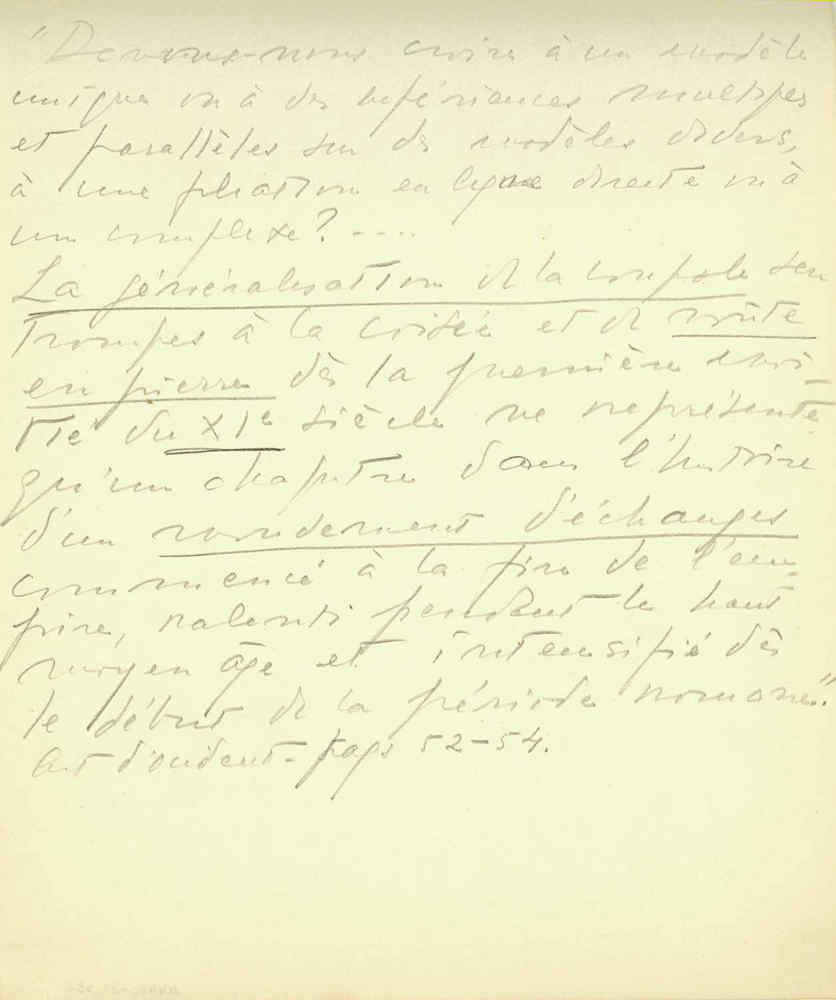 "Devons-nous croire à un modèle
unique ou à des expériences multiples
et parallèles sur des modèles divers,
à une filiation en ligne directe ou à
un complexe? ....
La généralisation de la coupole sur
trompes à la croisée et de voûte
en pierre dès la première moi-
tié du XIe siècle ne représente
qu'un chapitre dans l'histoire
d'un mouvement d'échanges
commencé à la fin de l'em-
pire, ralenti pendant le haut
moyen âge et intensifié dès
le début de la période romane".
Art d'occident - page 52-54.